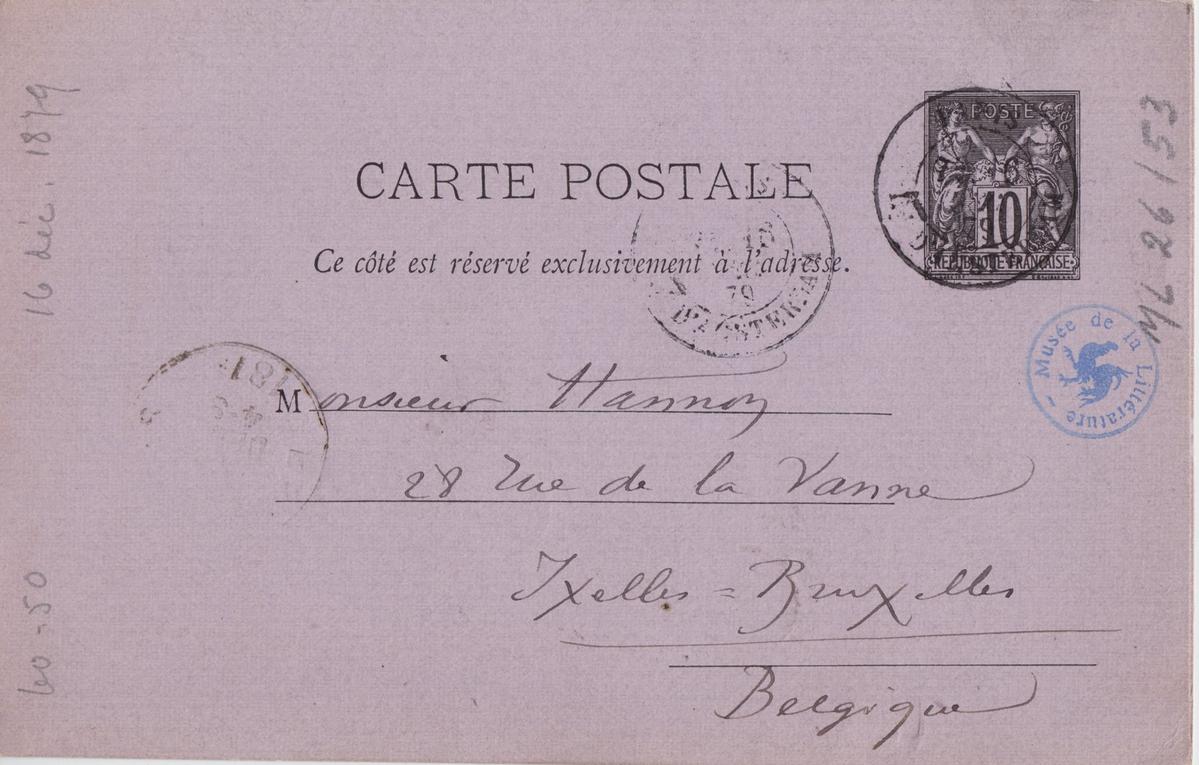 CARTE POSTALE
Ce côté est réservé exclusivement à l'adresse.
POSTE
10
RÉPUBLIQUE FRANÇAISE
Monsieur Hannon
28 rue de la Vanne
Ixelles = Bruxelles
Belgique
Musée de la Littérature
ML 26/53
16 déc. 1879
40-50
79